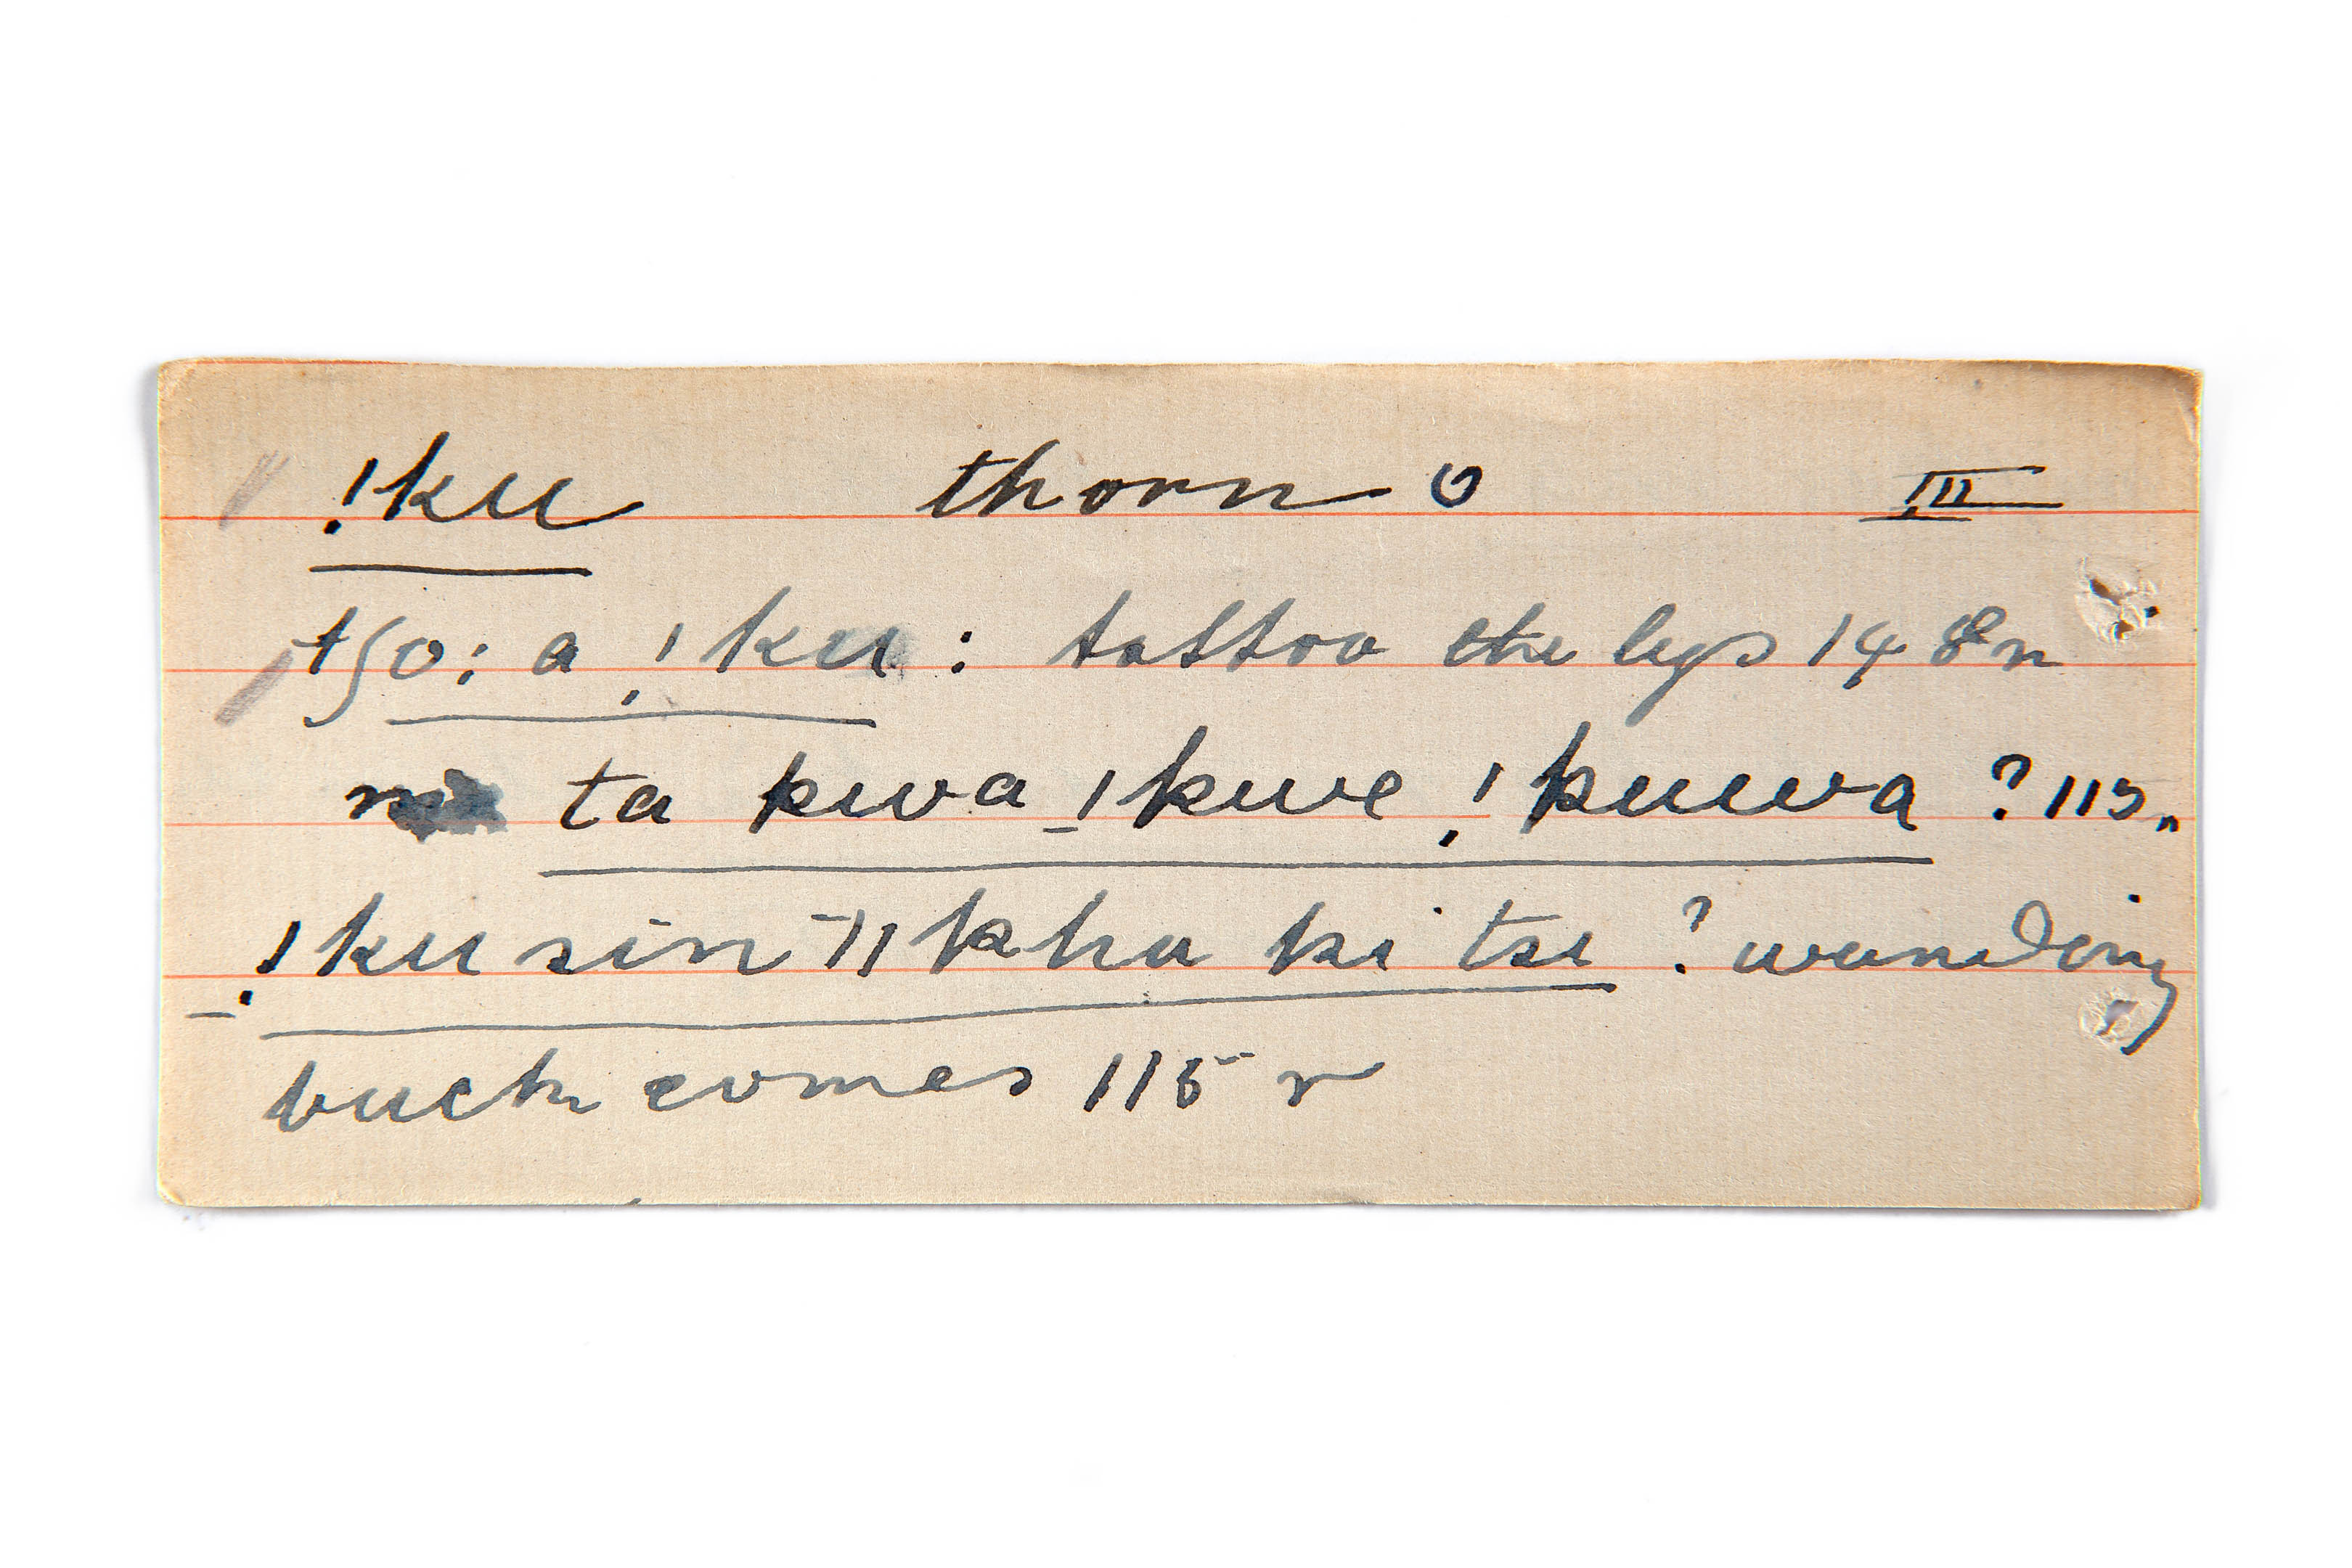 !ku thorn III
tʃo: a !ku : tattoo the legs 148n
ta kwa ǀkwe !kuwa ? 115n
!ku sin ǁkhu ki tse ? wunding
buck comes 115 r